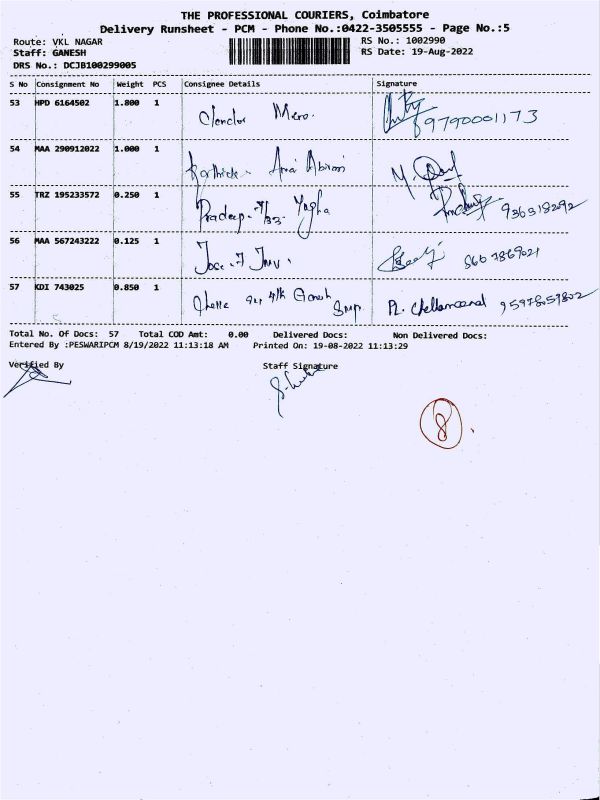 THE PROFESSIONAL COURIERS, Coimbatore
Delivery Runsheet - PCM - Phone No.:0422-3505555 - Page No.:5
Route: VKL NAGAR
RS No.: 1002990
Staff: GANESH
RS Date: 19-Aug-2022
DRS No.: DCJB100299005
S No Consignment No Weight PCS Consignee Details Signature
53 HPD 6164502 1.800 1 9790001173
54 MAA 290912022 1.000 1 Karthick
55 TRZ 195233572 0.250 1 Pradeep Yagha 9363182092
56 MAA 567243222 0.125 1
57 KDI 743025 0.850 1 Chella 4th 9597859802
Total No. Of Docs: 57 Total COD Amt: 0.00 Delivered Docs: Non Delivered Docs:
Entered By :PESWARIPCM 8/19/2022 11:13:18 AM Printed On: 19-08-2022 11:13:29
Verified By Staff Signature
8